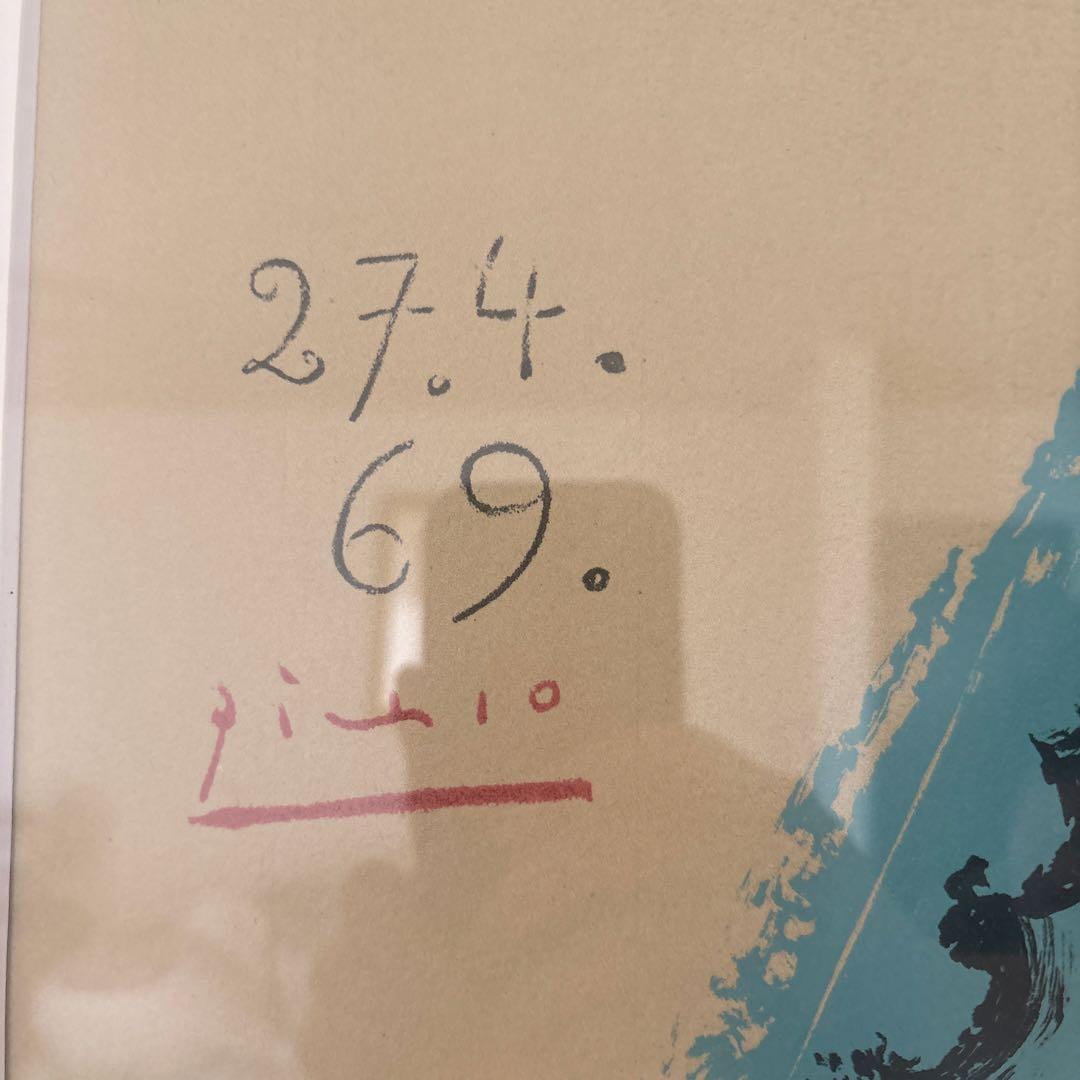 27.4.
69.
Picasso